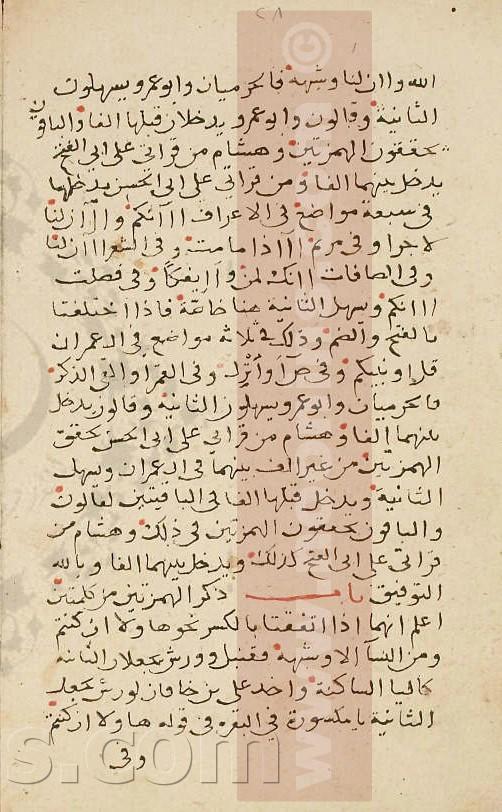 ٢٨
الله وان لنا وشبهه فالحرميان وابو عمرو يسهلون
الثانية وقالون وابو عمرو يدخلان قبلها الفا والباقون
يحققون الهمزتين وهشام من قراتي على ابي الفتح
يدخل بينهما الفا ومن قراتي على ابي الحسن يدخلها
في سبعة مواضع في الاعراف اانكم واان لنا
لاجرا وفي مريم ااذا ما مت وفي الشعرا اان لنا
وفي الصافات اانك لمن واايفكا وفي فصلت
اانكم ويسهل الثانية هنا خاصة فاذا اختلفتا
بالفتح والضم وذلك في ثلاثة مواضع في ال عمران
قل اونبيكم وفي ص اوانزل وفي القمر اولقي الذكر
فالحرميان وابو عمرو يسهلون الثانية وقالون يدخل
بينهما الفا وهشام من قراتي على ابي الحسن يحقق
الهمزتين من غير الف بينهما في ال عمران ويسهل
الثانية ويدخل قبلها الفا في الباقيتين لقالون
والباقون يحققون الهمزتين في ذلك وهشام من
قراتي على ابي الفتح كذلك ويدخل بينهما الفا وبالله
التوفيق باب ذكر الهمزتين من كلمتين
اعلم انهما اذا اتفقتا بالكسر نحو هاولا ان كنتم
ومن النسآ الا وشبهه فقنبل وورش يجعلان الثانية
كاليا الساكنة واخذ علي بن خاقان لورش بجعل
الثانية يا مكسورة في البقره في قوله هاولا ان كنتم
وفي
s.com
www.
©